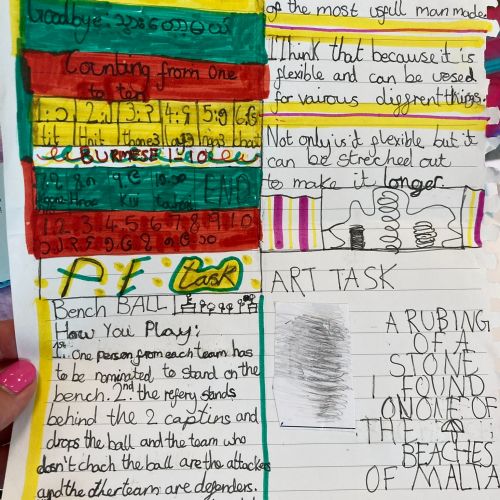 Goodbye:
Counting from One
to ten
1:၁ 2:၂ 3:၃ 4:၄ 5:၅ 6:၆
tit Hnit
BURMESE 1-10
END
1 2 3 4 5 6 7 8 9 10
PE task
Bench BALL
How You Play:
1st. One person from each team has
to be nominated to stand on the
bench. 2nd the refery stands
behind the 2 captins and
drops the ball and the team who
dosn't chach the ball are the attackers
and the other team are defenders.
of the most usfull man made
I Think that because it is
flexible and can be uesed
for vairous diggrent things.
Not only is it flexible but it
can be streched out
to make it longer.
ART TASK
A RUBING
OF A
STONE
I FOUND
ON ONE OF
THE
BEACHES
OF MALTA